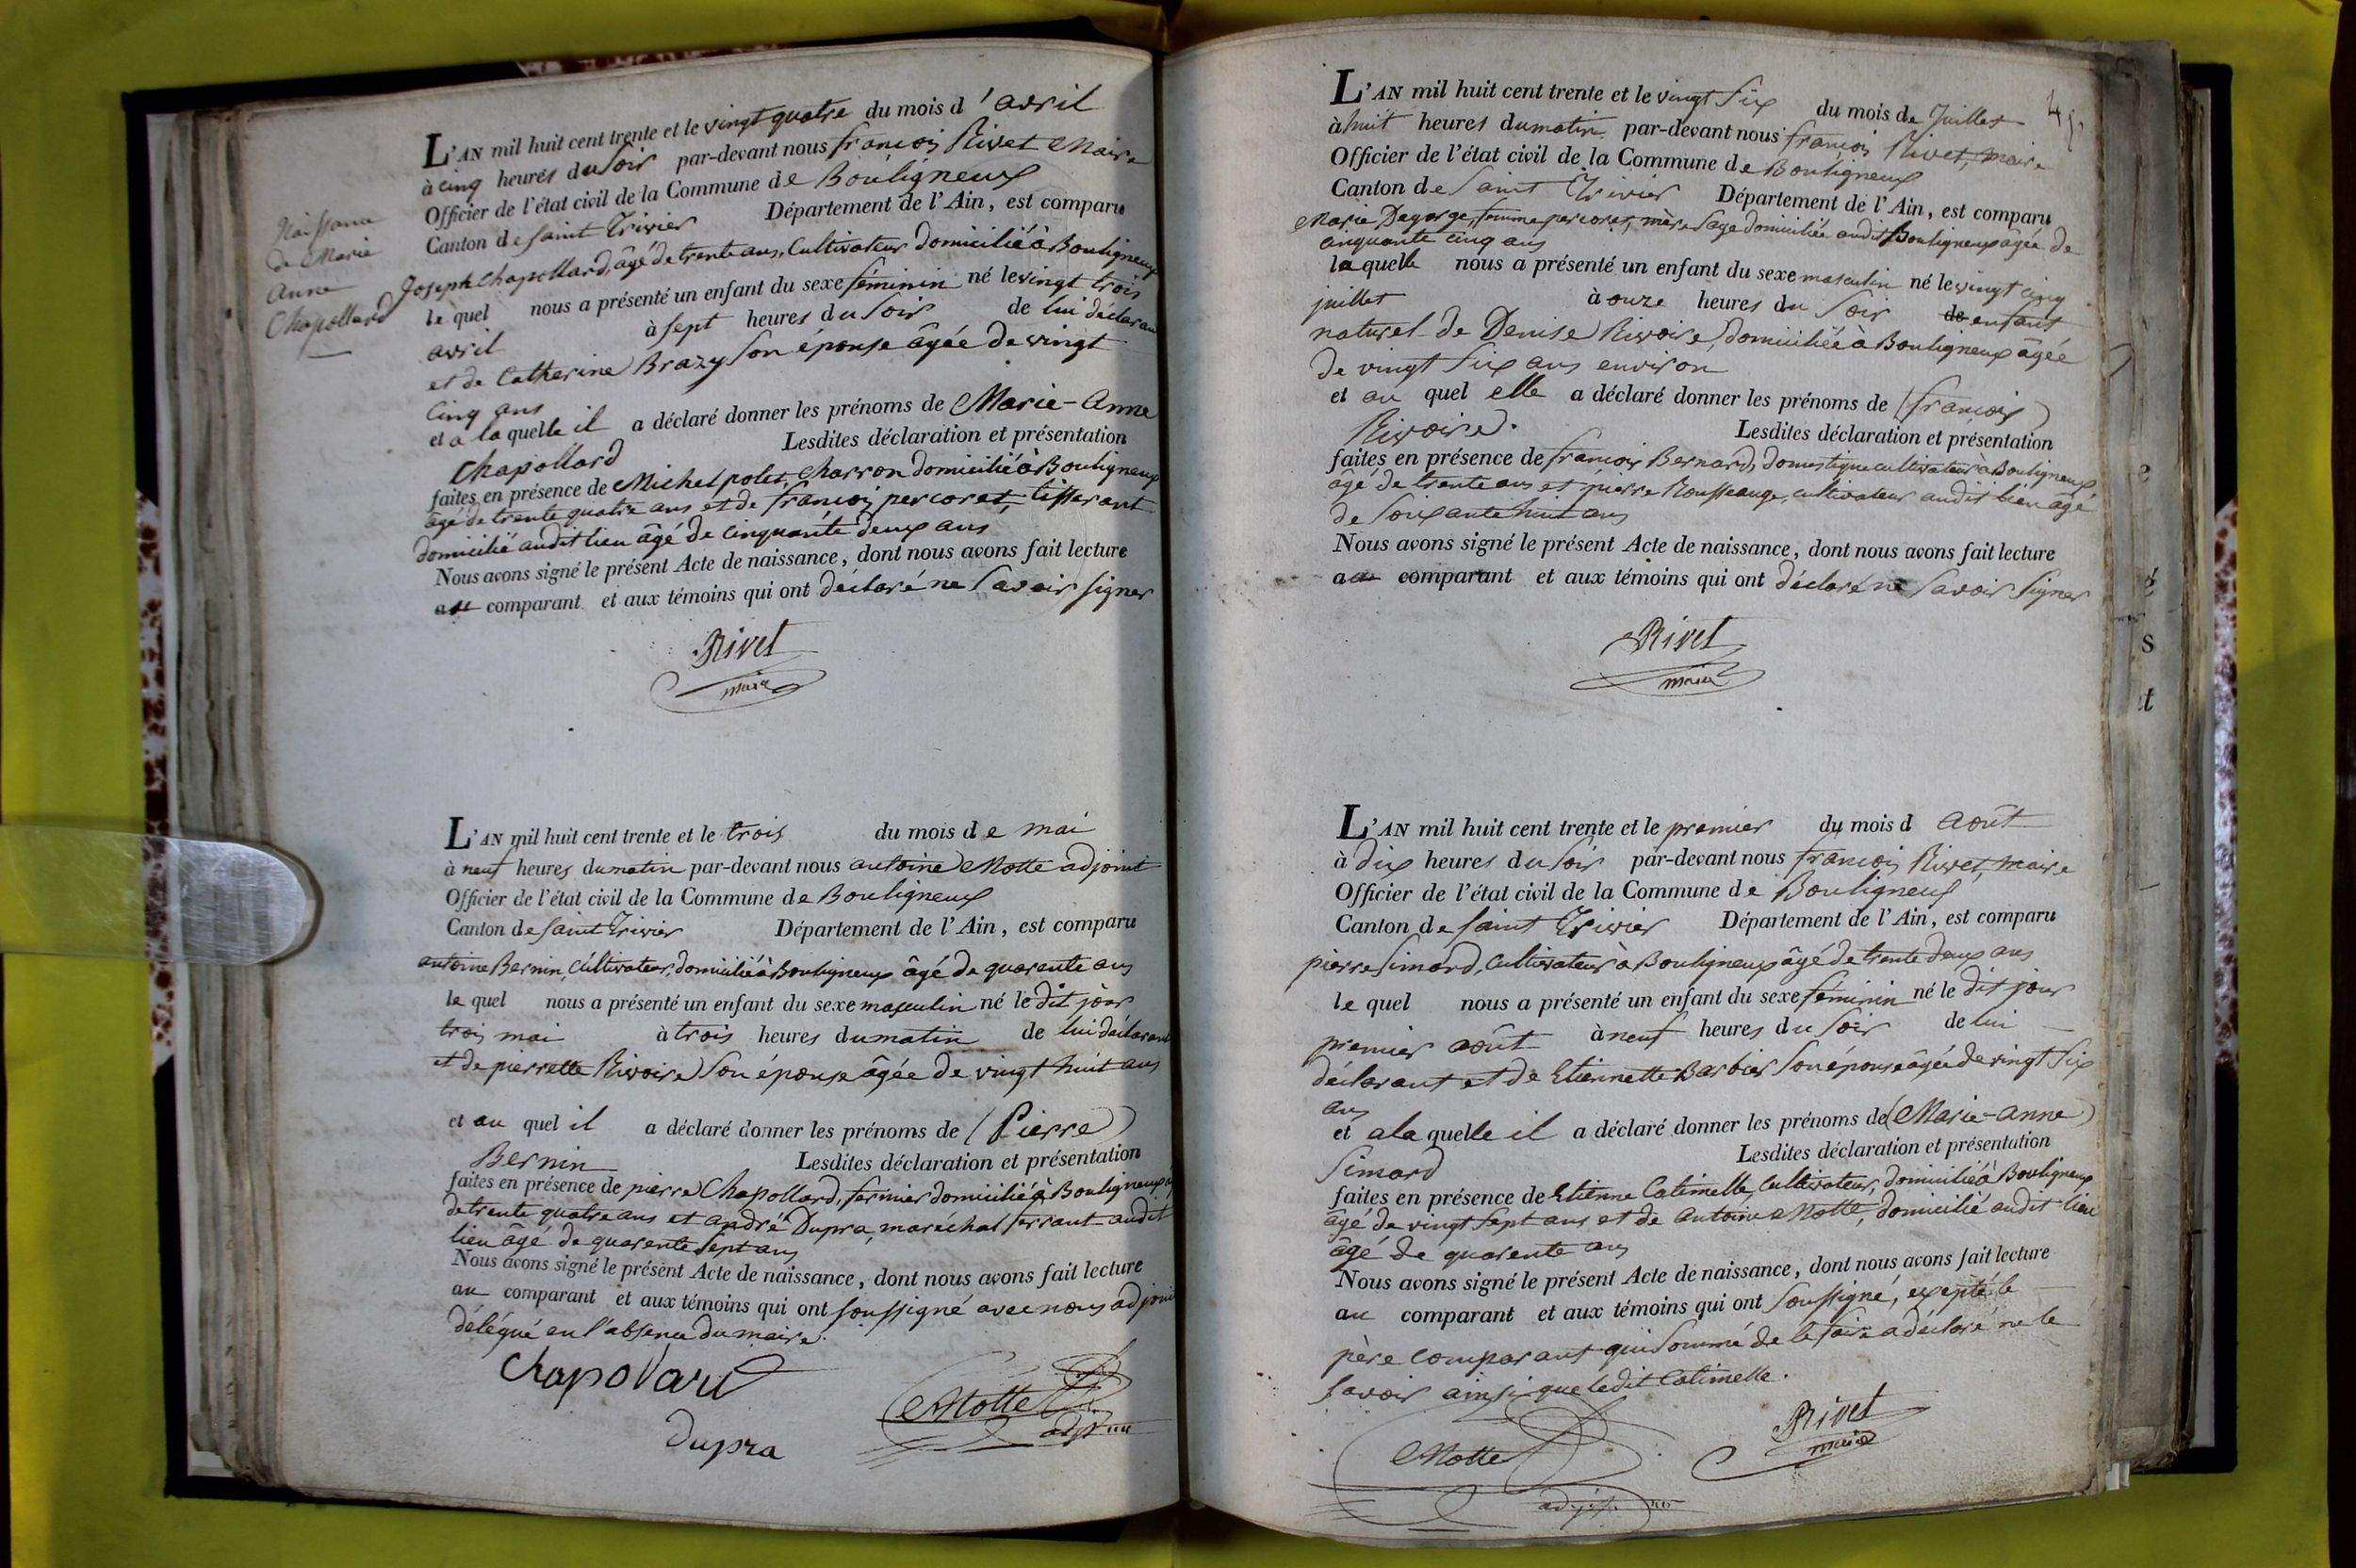 Naissance
de Marie
Anne
Chapollard
L'AN mil huit cent trente et le vingt quatre du mois d'avril
à cinq heures du soir par-devant nous françois Rivet Maire
Officier de l'état civil de la Commune de Bouligneux
Canton de saint Trivier Département de l'Ain, est comparu
Joseph Chapollard, âgé de trente ans, Cultivateur domicilié à Bouligneux
le quel nous a présenté un enfant du sexe féminin né le vingt trois
avril à sept heures du soir de lui déclarant
et de Catherine Brazy son épouse âgée de vingt
cinq ans
et a la quelle il a déclaré donner les prénoms de Marie-Anne
Chapollard Lesdites déclaration et présentation
faites en présence de Michel polet, charron domicilié à Bouligneux
âgé de trente quatre ans et de françois percoret, tisserant
domicilié audit lieu âgé de cinquante deux ans
Nous avons signé le présent Acte de naissance, dont nous avons fait lecture
au comparant et aux témoins qui ont déclaré ne savoir signer
Rivet
maire
L'AN mil huit cent trente et le trois du mois de mai
à neuf heures du matin par-devant nous antoine Motte adjoint
Officier de l'état civil de la Commune de Bouligneux
Canton de saint Trivier Département de l'Ain, est comparu
antoine Bernin, Cultivateur, domicilié à Bouligneux âgé de quarente ans
le quel nous a présenté un enfant du sexe masculin né le dit jour
trois mai à trois heures du matin de lui déclarant
et de pierrette Rivoire son épouse âgée de vingt huit ans
et au quel il a déclaré donner les prénoms de (Pierre)
Bernin Lesdites déclaration et présentation
faites en présence de pierre Chapollard, fermier domicilié à Bouligneux
de trente quatre ans et andré Dupra, maréchal ferrant audit
lieu âgé de quarente sept ans
Nous avons signé le présent Acte de naissance, dont nous avons fait lecture
au comparant et aux témoins qui ont soussigné avec nous adjoint
délégué en l'absence du maire.
Chapollard
Motte
adjoint
Dupra
L'AN mil huit cent trente et le vingt six du mois de Juillet
à huit heures du matin par-devant nous françois Rivet, maire
Officier de l'état civil de la Commune de Bouligneux
Canton de saint Trivier Département de l'Ain, est comparu
Marie Degorge, femme percoret, mère sage domiciliée audit Bouligneux âgée de
cinquante cinq ans
la quelle nous a présenté un enfant du sexe masculin né le vingt cinq
juillet à onze heures du soir de enfant
naturel de Denise Rivoire, domiciliée à Bouligneux âgée
de vingt six ans environ
et au quel elle a déclaré donner les prénoms de (françois)
Rivoire. Lesdites déclaration et présentation
faites en présence de françois Bernard, domestique cultivateur à Bouligneux
âgé de trente ans et pierre Rousseauge, cultivateur audit lieu âgé
de soixante huit ans
Nous avons signé le présent Acte de naissance, dont nous avons fait lecture
a comparant et aux témoins qui ont déclaré ne savoir signer
Rivet
maire
L'AN mil huit cent trente et le premier du mois d Août
à dix heures du soir par-devant nous françois Rivet, maire
Officier de l'état civil de la Commune de Bouligneux
Canton de saint Trivier Département de l'Ain, est comparu
pierre Simard, Cultivateur à Bouligneux âgé de trente deux ans
le quel nous a présenté un enfant du sexe féminin né le dit jour
premier août à neuf heures du soir de lui
déclarant et de Etiennette Barbier son épouse âgée de vingt six
ans
et a la quelle il a déclaré donner les prénoms de (Marie-Anne)
Simard Lesdites déclaration et présentation
faites en présence de Etienne Catimelle, Cultivateur, domicilié à Bouligneux
âgé de vingt sept ans et de antoine Motte, domicilié audit lieu
âgé de quarente ans
Nous avons signé le présent Acte de naissance, dont nous avons fait lecture
au comparant et aux témoins qui ont soussigné, excepté le
père comparant qui sommé de le faire a déclaré ne le
savoir ainsi que ledit Catimelle.
Rivet
maire
Motte